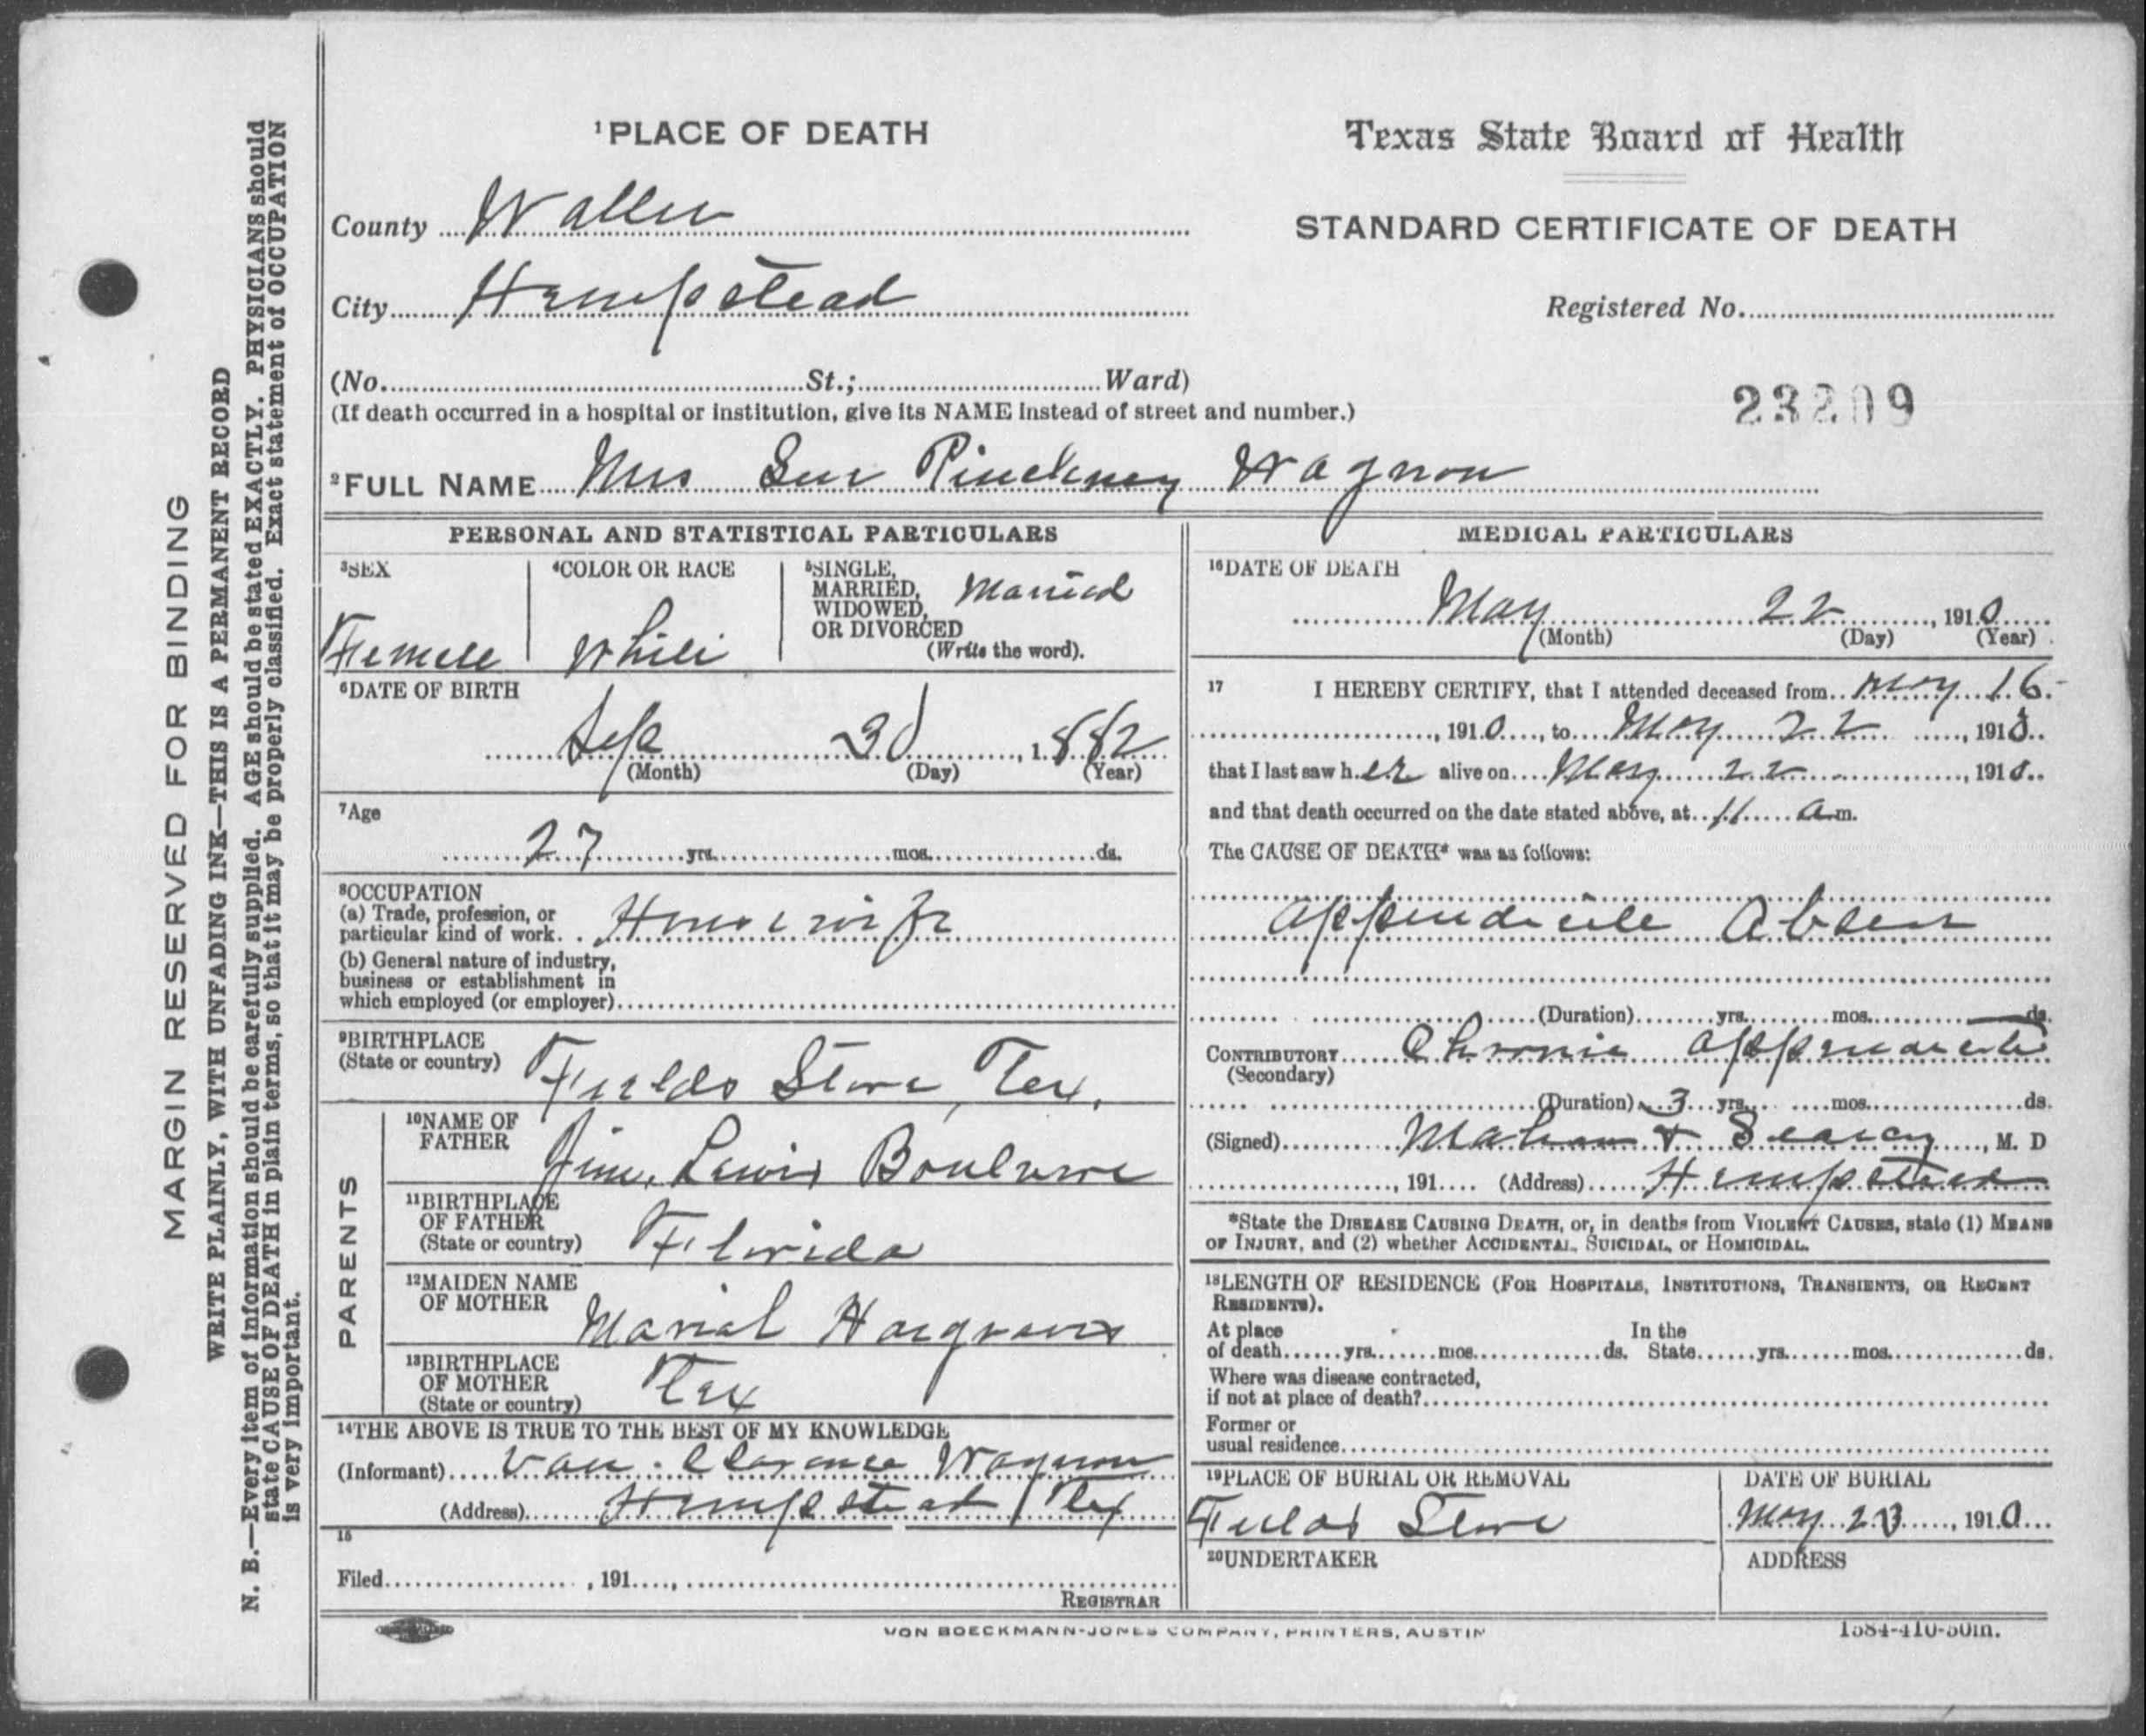 MARGIN RESERVED FOR BINDING
WRITE PLAINLY, WITH UNFADING INK—THIS IS A PERMANENT RECORD
N. B.—Every item of information should be carefully supplied. AGE should be stated EXACTLY. PHYSICIANS should
state CAUSE OF DEATH in plain terms, so that it may be properly classified. Exact statement of OCCUPATION
is very important.
1 PLACE OF DEATH
County Waller
City Hempstead
(No. St.; Ward)
(If death occurred in a hospital or institution, give its NAME instead of street and number.)
Texas State Board of Health
STANDARD CERTIFICATE OF DEATH
Registered No.
23209
2 FULL NAME Mrs Sue Pinckney Wagnon
PERSONAL AND STATISTICAL PARTICULARS
3 SEX
Female
4 COLOR OR RACE
White
5 SINGLE,
MARRIED,
WIDOWED,
OR DIVORCED
(Write the word).
Married
6 DATE OF BIRTH
Sep 30, 1882
(Month) (Day) (Year)
7 Age
27 yrs. mos. ds.
8 OCCUPATION
(a) Trade, profession, or
particular kind of work. Housewife
(b) General nature of industry,
business or establishment in
which employed (or employer)
9 BIRTHPLACE
(State or country) Fields Store, Tex.
PARENTS
10 NAME OF
FATHER Jim. Lewis Bouluare
11 BIRTHPLACE
OF FATHER
(State or country) Florida
12 MAIDEN NAME
OF MOTHER Mariah Hargraves
13 BIRTHPLACE
OF MOTHER
(State or country) Tex
14 THE ABOVE IS TRUE TO THE BEST OF MY KNOWLEDGE
(Informant) Van. Clarence Wagnon
(Address) Hempstead Tex
15
Filed , 191 ,
REGISTRAR
MEDICAL PARTICULARS
16 DATE OF DEATH
May 22, 1910
(Month) (Day) (Year)
17 I HEREBY CERTIFY, that I attended deceased from May 16
, 1910, to May 22, 1910
that I last saw her alive on May 22, 1910
and that death occurred on the date stated above, at 11 a.m.
The CAUSE OF DEATH* was as follows:
Appendicile Abcess
(Duration) yrs. mos. ds.
CONTRIBUTORY Chronic Appendicitis
(Secondary)
(Duration) 3 yrs. mos. ds.
(Signed) Mahan & Searcy, M. D
, 191 (Address) Hempstead
*State the DISEASE CAUSING DEATH, or, in deaths from VIOLENT CAUSES, state (1) MEANS
OF INJURY, and (2) whether ACCIDENTAL, SUICIDAL, or HOMICIDAL.
18 LENGTH OF RESIDENCE (FOR HOSPITALS, INSTITUTIONS, TRANSIENTS, OR RECENT
RESIDENTS).
At place In the
of death yrs. mos. ds. State yrs. mos. ds.
Where was disease contracted,
if not at place of death?
Former or
usual residence
19 PLACE OF BURIAL OR REMOVAL
Fields Store
DATE OF BURIAL
May 23, 1910
20 UNDERTAKER
ADDRESS
VON BOECKMANN-JONES COMPANY, PRINTERS, AUSTIN
1584-410-50m.